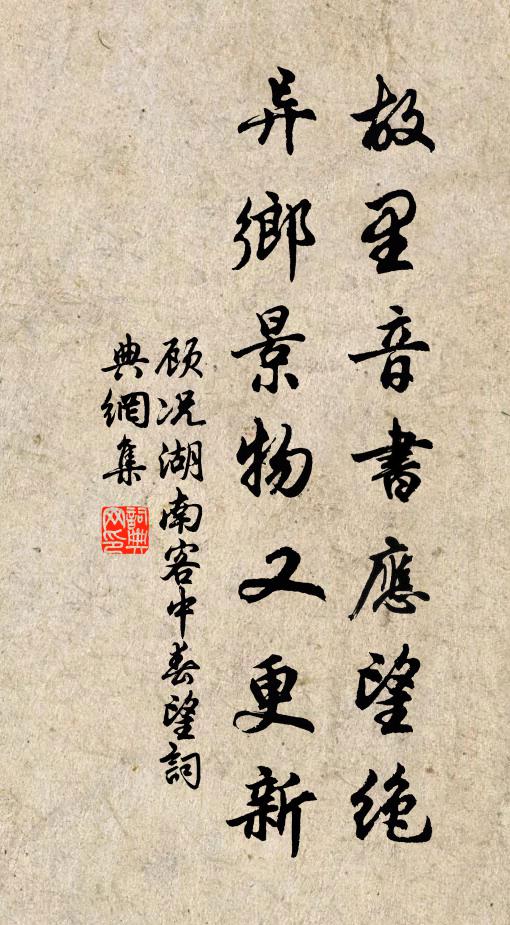 故里音書應望絶
异鄉景物又更新
顾况湖南客中春望詞
典網集
詞典网印